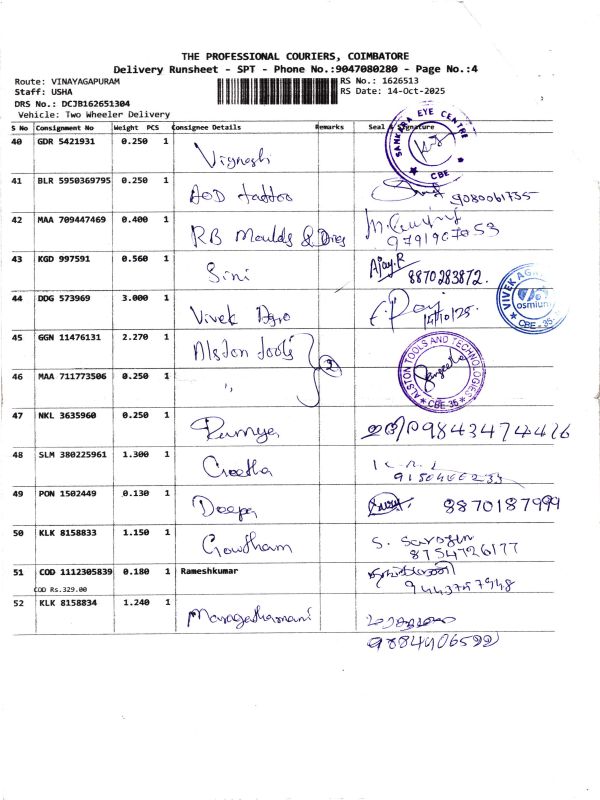 THE PROFESSIONAL COURIERS, COIMBATORE
Delivery Runsheet - SPT - Phone No.:9047080280 - Page No.:4
Route: VINAYAGAPURAM RS No.: 1626513
Staff: USHA RS Date: 14-Oct-2025
DRS No.: DCJB162651304
Vehicle: Two Wheeler Delivery
S No Consignment No Weight PCS Consignee Details Remarks Seal & Signature
40 GDR 5421931 0.250 1 Vignesh SANKARA EYE CENTRE CBE
41 BLR 5950369795 0.250 1 AOD tattoo 9080061735
42 MAA 709447469 0.400 1 RB Moulds & Dies
9791907053
43 KGD 997591 0.560 1 Sini Ajay.R
8870283872.
44 DDG 573969 3.000 1 Vivek Agro 14/10/25. VIVEK AG osmium CBE - 35
45 GGN 11476131 2.270 1 Alston tools 2 ALSTON TOOLS AND TECHNOLOGIES CBE 35 Sangeetha
46 MAA 711773506 0.250 1 "
47 NKL 3635960 0.250 1 Ramya 9843474426
48 SLM 380225961 1.300 1 Geetha
49 PON 1502449 0.130 1 Deepa 8870187999
50 KLK 8158833 1.150 1 Gowtham S.
8754726177
51 COD 1112305839 0.180 1 Rameshkumar
COD Rs.329.00 9443757948
52 KLK 8158834 1.240 1
9884906592